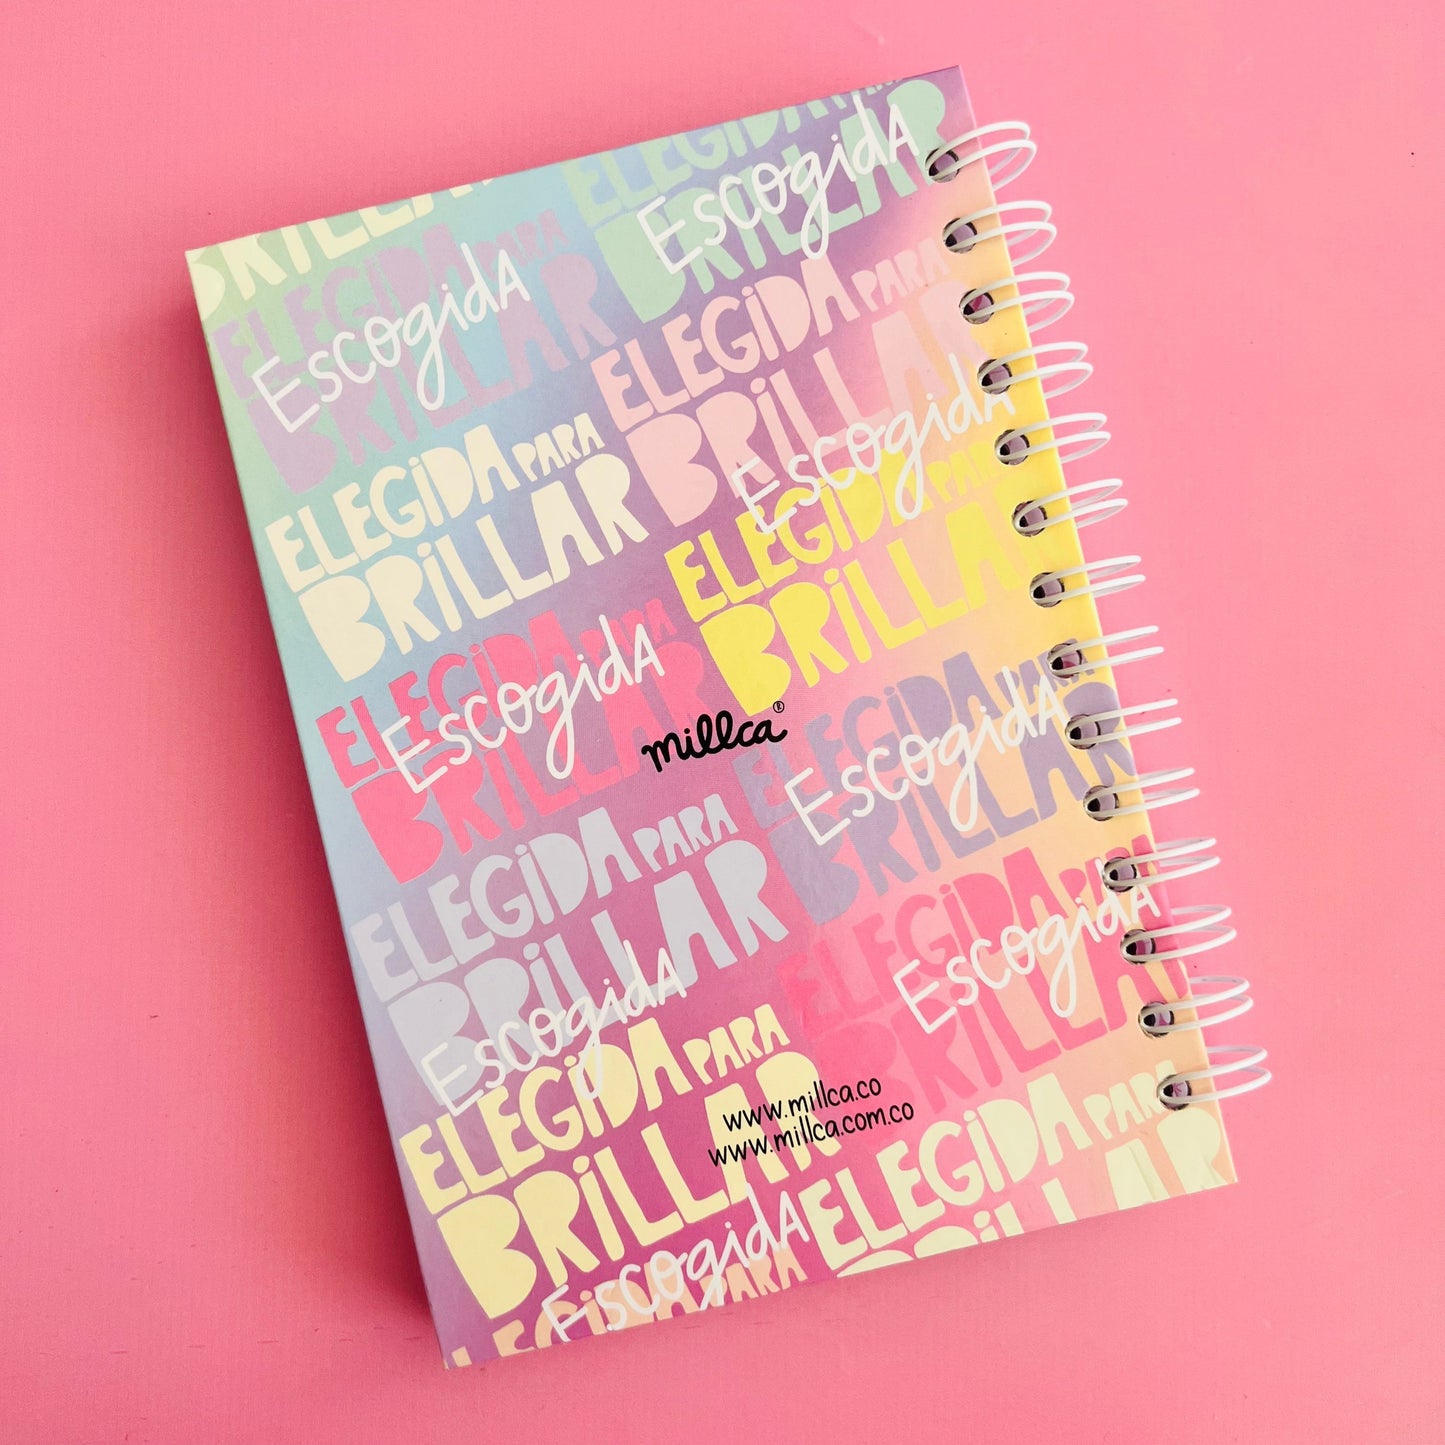 ELEGIDA PARA
BRILLAR
BRILLAR
Escogida
ELEGIDA PARA
BRILLAR
Escogida
ELEGIDA PARA
BRILLAR
ELEGIDA PARA
BRILLAR
Escogida
ELEGIDA PARA
BRILLAR
ELEGIDA PARA
BRILLAR
Escogida
millca®
ELEGIDA PARA
BRILLAR
Escogida
ELEGIDA PARA
BRILLAR
ELEGIDA PARA
BRILLAR
Escogida
Escogida
ELEGIDA PARA
BRILLAR
www.millca.co
www.millca.com.co
ELEGIDA PARA
BRILLAR
Escogida
ELEGIDA PARA